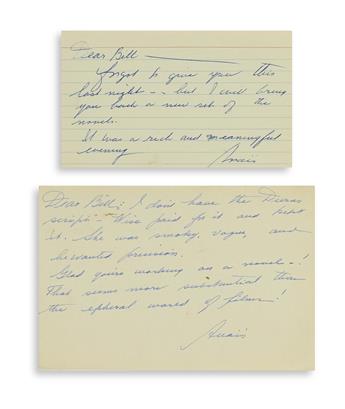 Dear Bill —
forgot to give you this
last night – – but I will bring
you back a new set of the
novels.
It was a rich and meaningful
evening
Anaïs
Dear Bill: I don't have the Duras
script – Wise paid for it and kept
it. She was smoky, vague, and
he wanted precision.
Glad you're working on a novel –!
That seems more substantial than
the epheral world of films!
Anaïs